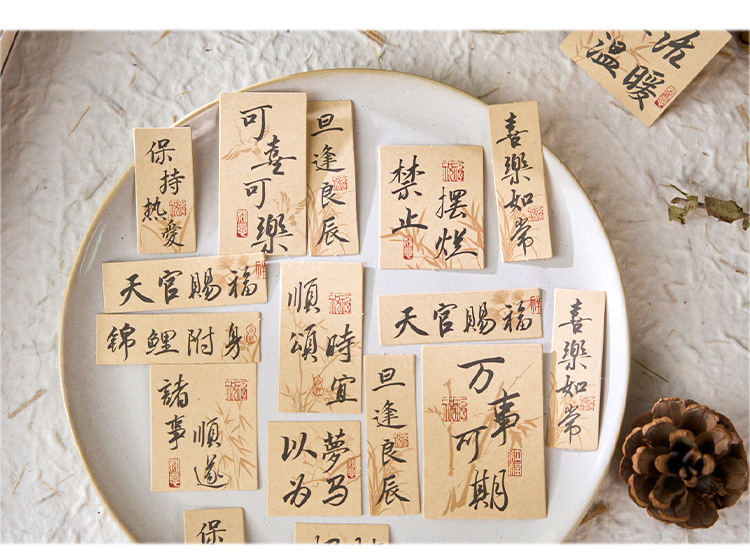 活
温暖
保持热愛
可喜
可樂
旦逢良辰
禁止
摆烂
喜樂如常
天官賜福
錦鯉附身
順頌
時宜
天官賜福
喜樂如常
諸事
順遂
以夢
为马
旦逢良辰
万事
可期
保